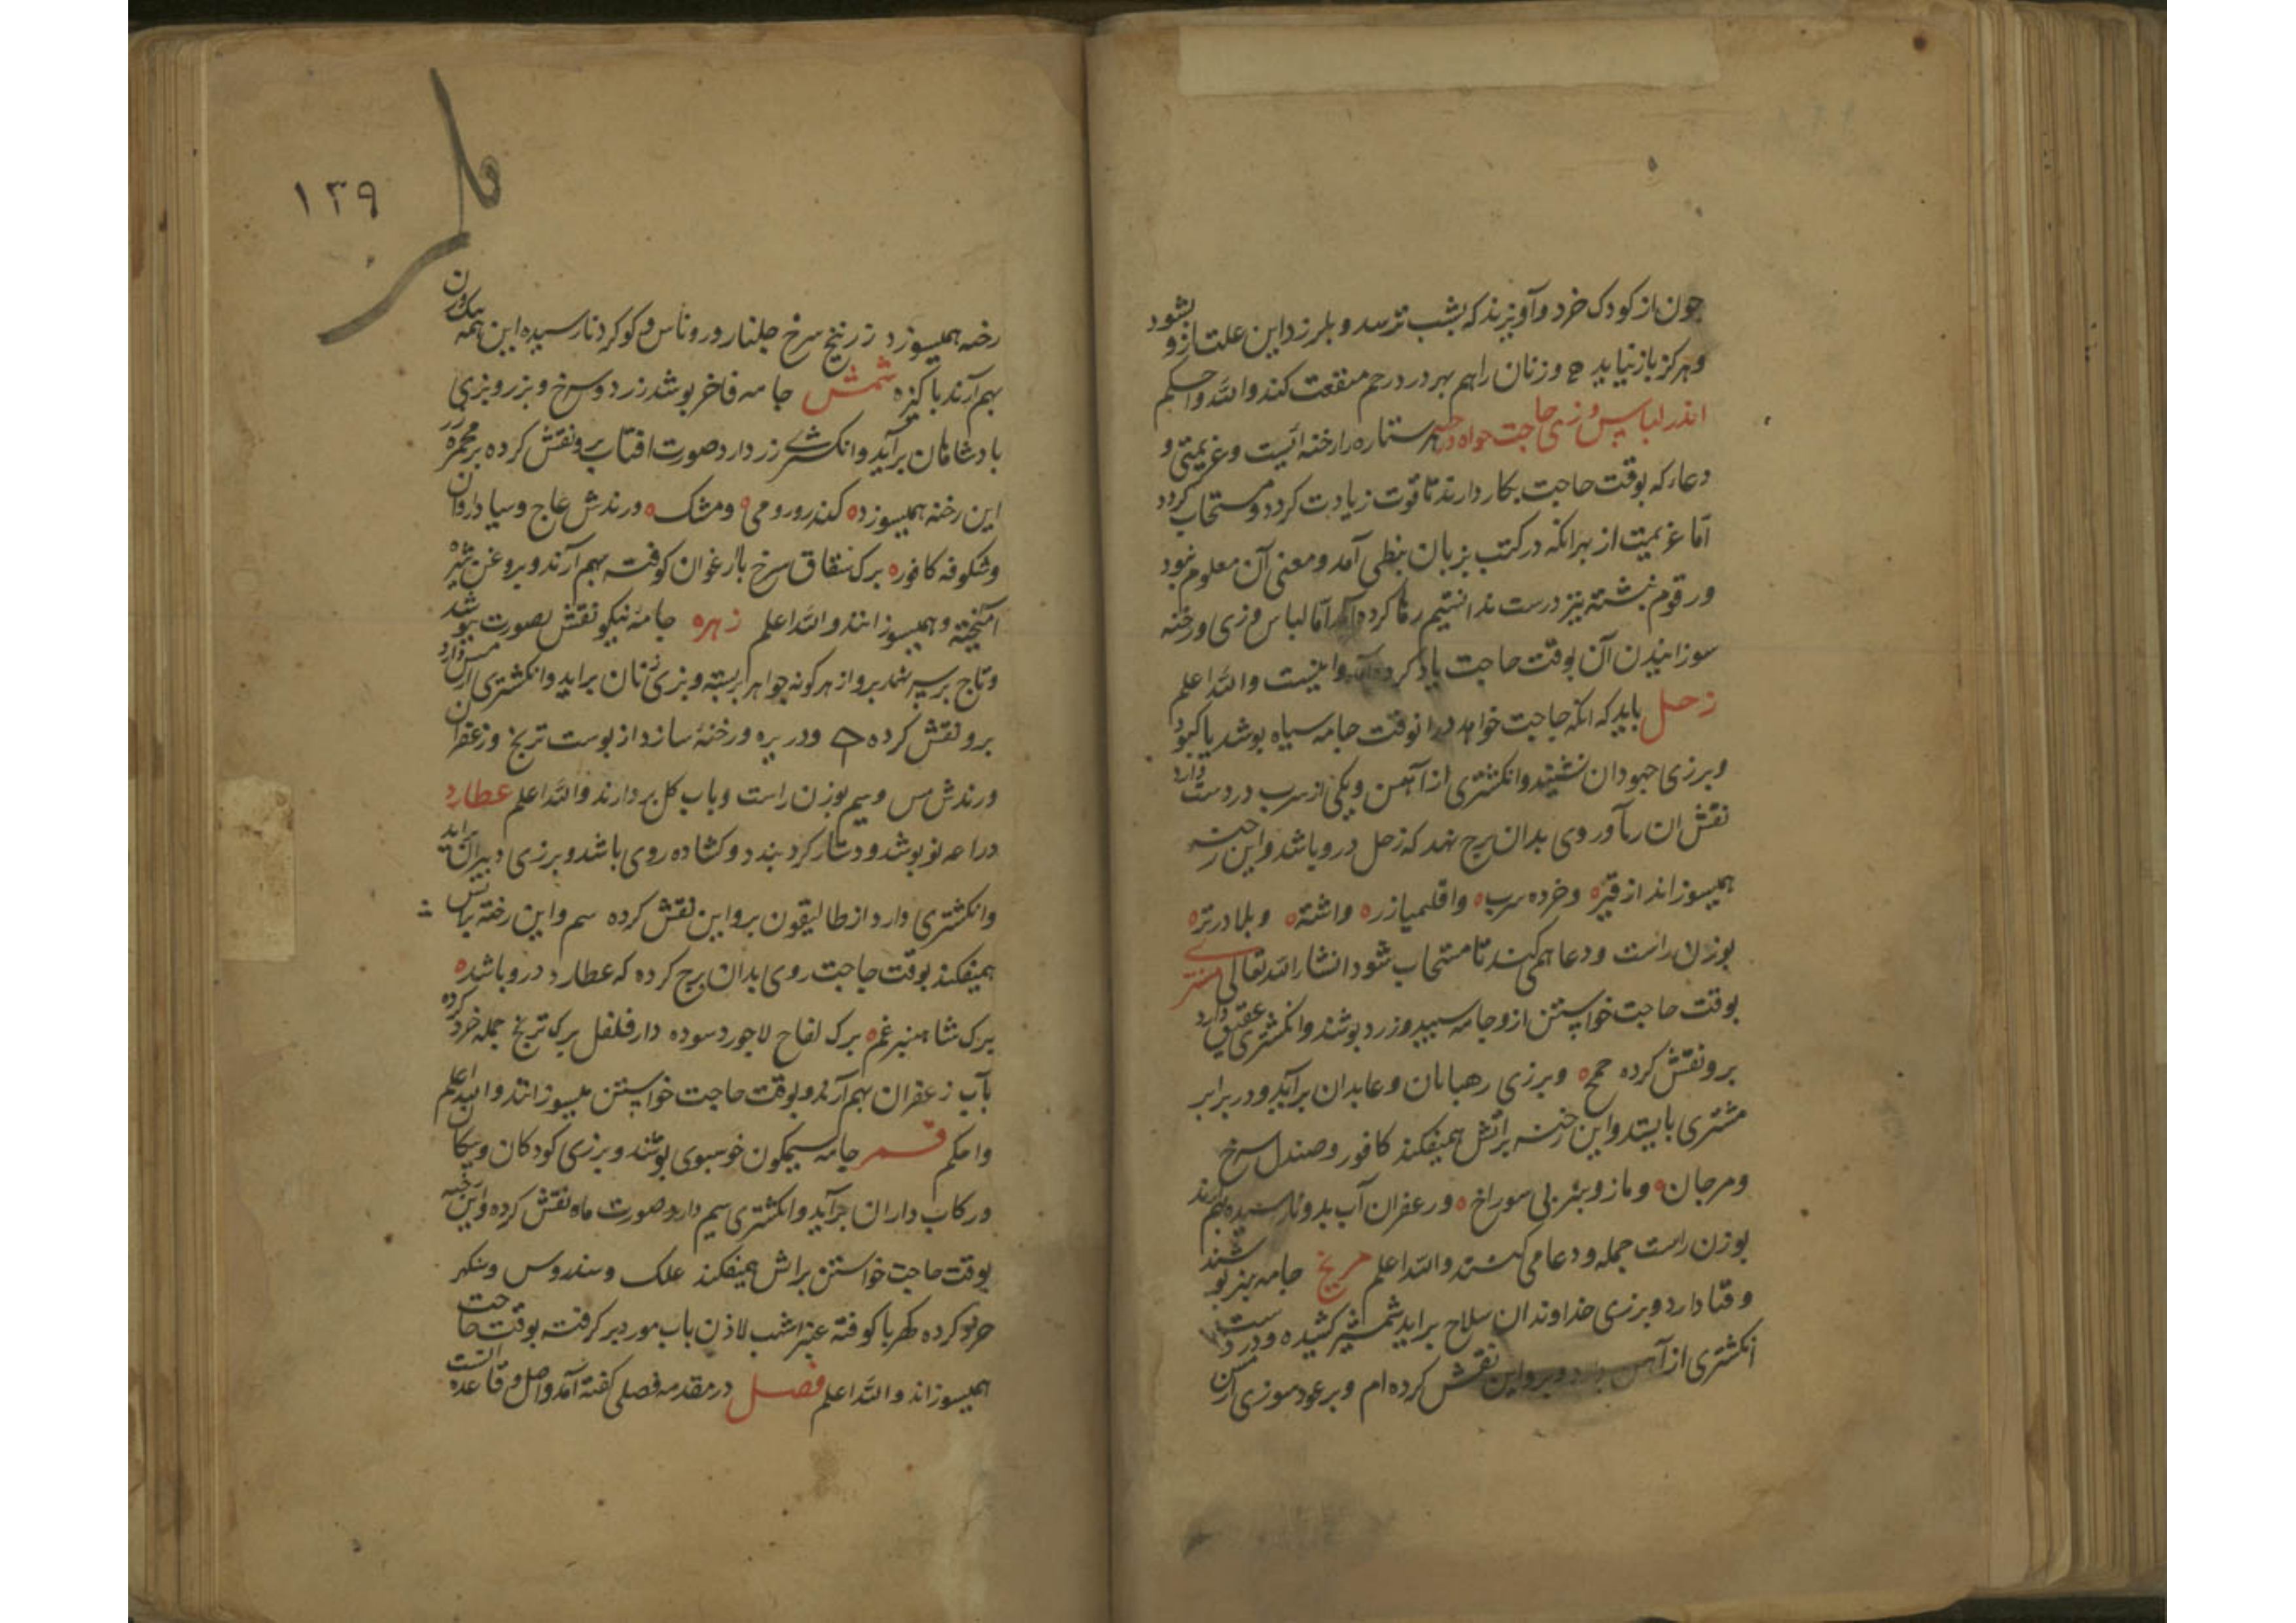 چون از کودک خرد و آویزند که بشب ترسد و بلرزد این علت ازو بشود
و هرکز باز نیاید و زنان را هم بهر درد رحم منفعت کند والله واحکم
اندر لباس و زی حاجت خواه و رخنه هر ستاره را رخنه ایست و عزیمتی و
دعا که بوقت حاجت بکار دارند تا قوت زیادت کردد و مستجاب کردد
اما عزیمت از بهر انکه در کتب بزبان نبطی آمد و معنی آن معلوم نبود
و رقوم نبشته نیز درست ندانستیم رها کرده آمد اما لباس و زی و رخنه
سوزانیدن آن بوقت حاجت یاد کرده آمد و اینست والله اعلم
زحل باید که انکه حاجت خواهد در انوقت جامه سیاه بوشد یا کبود
و برزی جهودان نشیند و انکشتری از آهن و یکی از سرب در دست دارد
نقش ان رما و روی بدان برج نهد که زحل درو باشد و این رخنه
همیسوزاند از قیر و خرده سرب و اقلیمیا زر و اشنه و بلادر تر
بوزن راست و دعا همی کند تا مستجاب شود انشاالله تعالی مشتری
بوقت حاجت خواستن ازو جامه سبید و زرد بوشند و انکشتری عقیق دارد
برو نقش کرده حمح و برزی رهبانان و عابدان برآید و در برابر
مشتری بایستد و این رخنه برآتش همیفکند کافور و صندل سرخ
و مرجان و مازو بنر بی سوراخ و زعفران آب بدو نارسیده بهم آرند
بوزن راست جمله و دعا می کنند والله اعلم مریخ جامه بنر بوشند
و قبا دارد و برزی خداوندان سلاح براید شمشیر کشیده و در دست
انکشتری از آهن دارد و برو این نقش کرده ام و بر عود سوزی از مس
۱۳۹
رخنه همیسوزد زرنیخ سرخ جلنار و روناس و کوکرد نارسیده این همه بیک وزن
بهم آرند باکیزه شمس جامه فاخر بوشد زرد و سرخ و بزر و بزی
بادشاهان برآید و انکشتری زر دارد صورت افتاب برو نقش کرده بر مجمره زر
این رخنه همیسوزد کندر رومی و مشک و رندش عاج و سیاداروان
و شکوفه کافور برک شقاق سرخ بارغوان کوفته بهم آرند و بروغن شیره
آمیخته و همیسوزانند والله اعلم زهره جامه نیکو نقش بصورت بوشد
و تاج بر سر نهد برو از هر کونه جواهر بسته و بزی زنان براید و انکشتری از مس دارد
برو نقش کرده و در بره و رخنه سازد از بوست ترنج و زعفران
و رندش مس و سیم بوزن راست و باب کل بردارند والله اعلم عطارد
دراعه نو بوشد و دستار کرد بندد و کشاده روی باشد و برزی دبیران براید
و انکشتری دارد از طالیقون برو این نقش کرده سم و این رخنه باتش
همیفکند بوقت حاجت روی بدان برج کرده که عطارد درو باشد
برک شاهسبرغم برک لفاح لاجورد سوده دارفلفل برک ترنج جمله خرد کرده
بآب زعفران بهم آرند و بوقت حاجت خواستن میسوزانند والله اعلم
واحکم قمر جامه سیمکون خوشبوی بوشند و برزی کودکان و بیکان
و رکاب داران برآید و انکشتری سیم دارد صورت ماه نقش کرده و این رخنه
بوقت حاجت خواستن براتش همیفکند علک و سندروس و شکر
خربو کرده کهربا کوفته عنبر اشهب لاذن باب مورد برکرفته بوقت حاجت
همیسوزاند والله اعلم فصل در مقدمه فصلی کفته آمد و اصل و قاعده انست